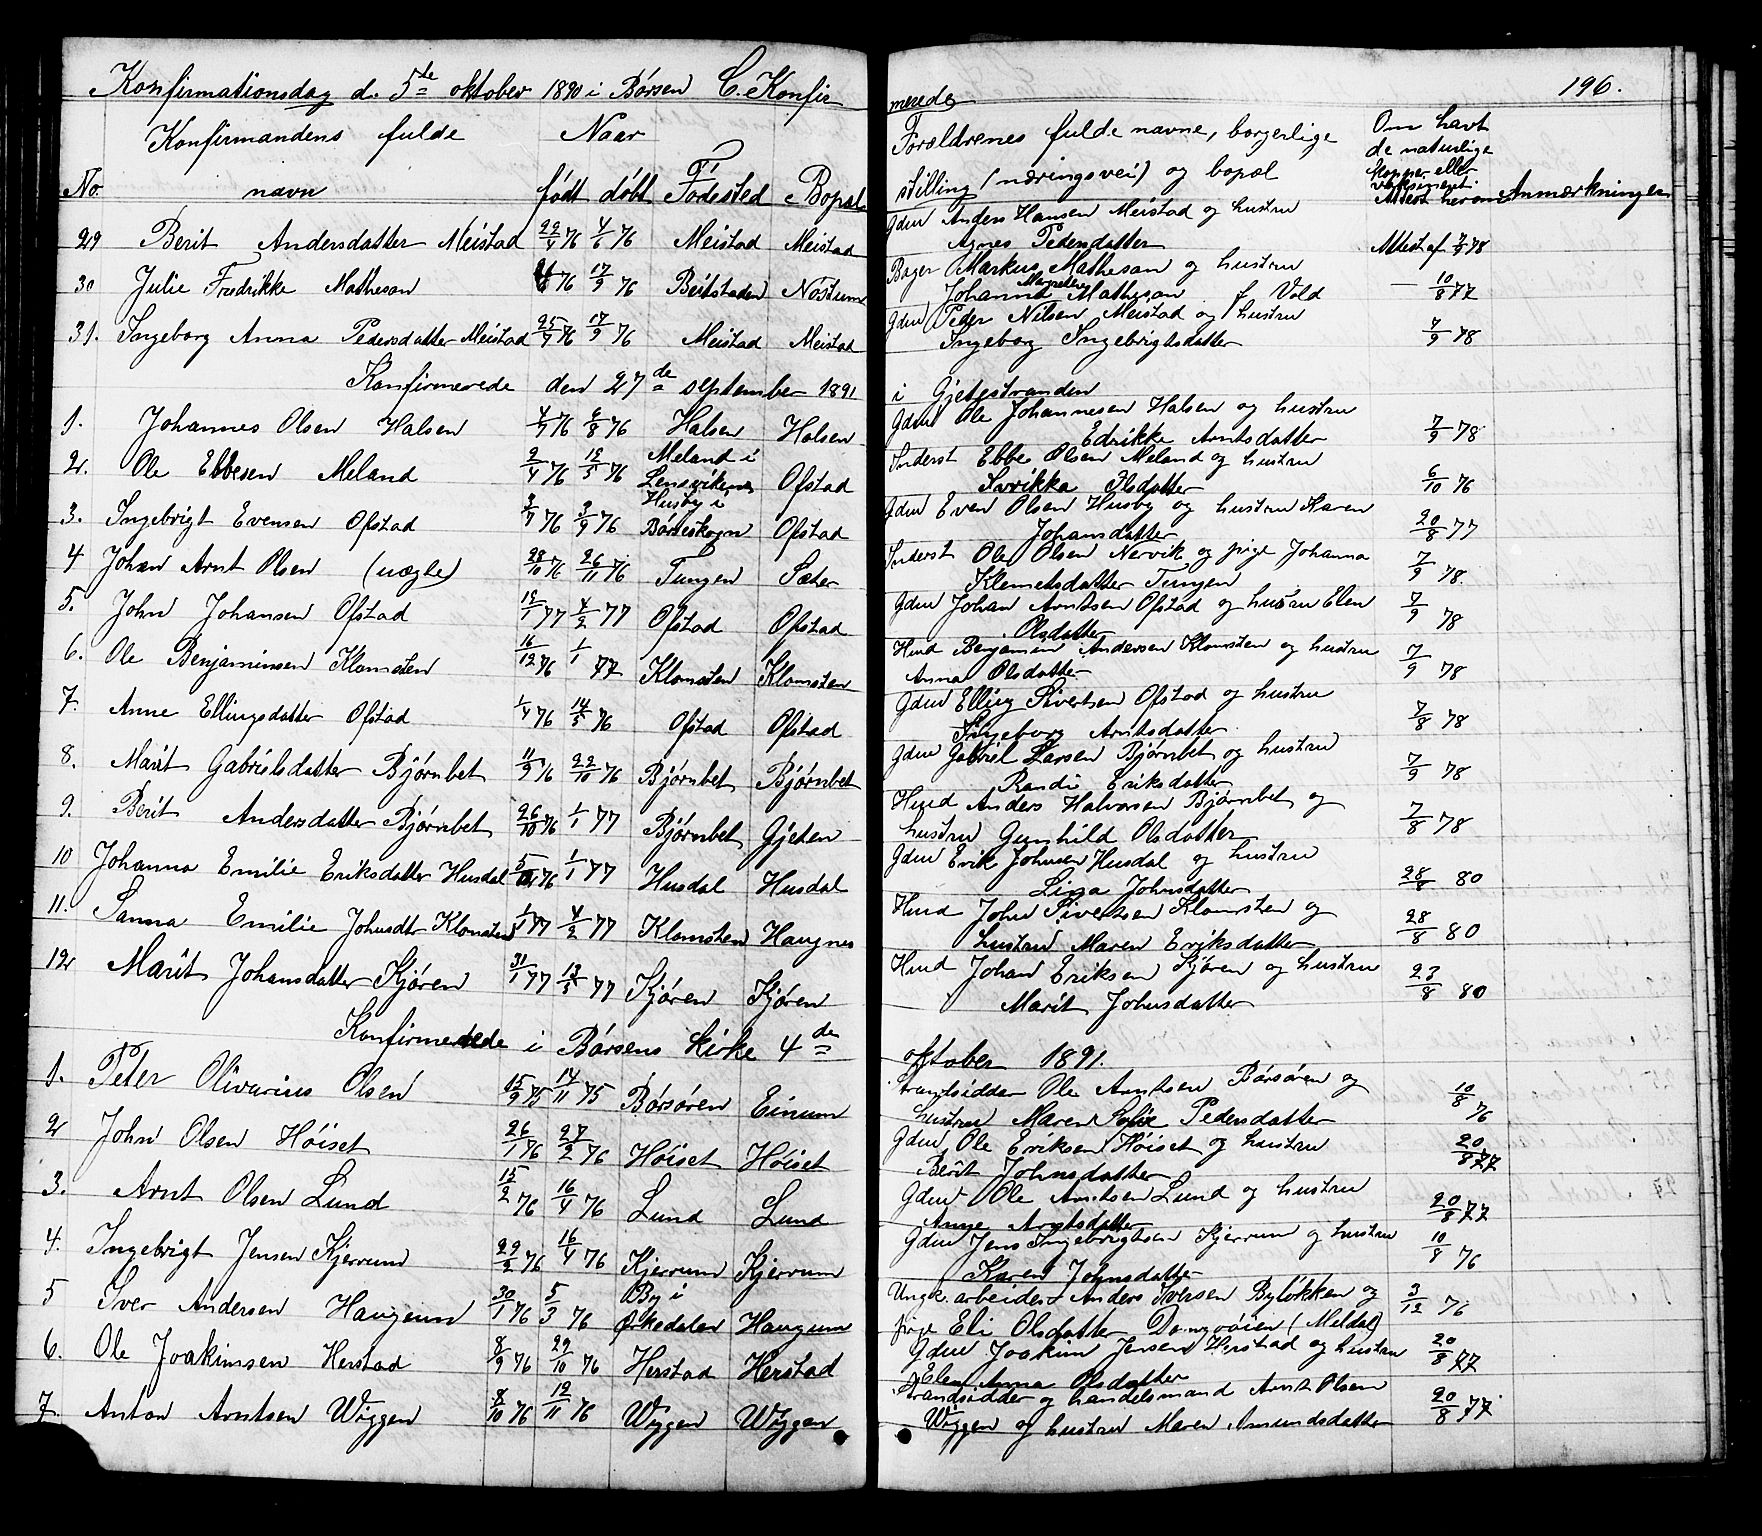 Konfirmationsdag d. 5te oktober 1890 i Børsen C. Konfir
Konfirmandens fulde Naar
No. navn født døbt Fødested Bopæl
29 Berit Andersdatter Meistad 22/4 76 4/6 76 Meistad Meistad
30 Julie Fredrikke Matheson 76 17/9 76 Beitstaden Nostum
31. Ingeborg Anna Pedersdatter Meistad 25/7 76 17/9 76 Meistad Meistad
Konfirmerede den 27de september 1891
1. Johannes Olsen Halsen 4/7 76 6/8 76 Halsen Halsen
2. Ole Ebbesen Meland 2/4 76 12/5 76 Meland i Lensviken Ofstad
3. Ingebrigt Evensen Ofstad 3/7 76 3/9 76 Husby i Børseskogn Ofstad
4 Johan Arnt Olsen (uægte) 28/10 76 26/11 76 Tungen Sæter
5. John Johansen Ofstad 12/1 77 4/2 77 Ofstad Ofstad
6. Ole Benjaminsen Klomsten 16/12 76 1/1 77 Klomsten Klomsten
7. Anne Ellingsdatter Ofstad 1/4 76 14/5 76 Ofstad Ofstad
8. Marit Gabrielsdatter Bjørnbet 11/9 76 22/10 76 Bjørnbet Bjørnbet
9. Berit Andersdatter Bjørnbet 26/10 76 1/1 77 Bjørnbet Gjeten
10 Johanna Emilie Eriksdatter Husdal 76 1/1 77 Husdal Husdal
11. Sanna Emilie Johnsdtr Klomsten 1/1 77 4/2 77 Klomsten Haugnes
12 Marit Johansdatter Kjøren 31/1 77 13/5 77 Kjøren Kjøren
Konfirmerede i Børsens kirke 4de
1. Peter Olivarius Olsen 15/9 75 14/11 75 Børsøren Einum
2 John Olsen Høiset 26/1 76 27/2 76 Høiset Høiset
3. Arnt Olsen Lund 15/2 76 16/4 76 Lund Lund
4. Ingebrigt Jensen Kjerrum 29/2 76 16/4 76 Kjerrum Kjerrum
5 Iver Andersen Haugum 30/1 76 5/3 76 By i Ørkedalen Haugum
6. Ole Joakimsen Herstad 8/9 76 29/10 76 Herstad Herstad
7. Anton Arntsen Wiggen 8/10 76 12/11 76 Wiggen Wiggen
merede 196.
Forældrenes fulde navne, borgerlige
stilling (næringsvei) og bopæl
Om havt
de naturlige
kopper eller
vaksineret.
Attest herom Anmærkninger
Gdm Anders Hansen Meistad og hustru
Agnes Pedersdatter Attest af 7/9 78
Bager Markus Matheson og hustru
Johanna Matheson f. Vold — 10/8 77
Gdm Peder Nilsen Meistad og hustru
Ingeborg Ingebrigtsdatter 7/9 78
i Gjetestranden
Gdm Ole Johannesen Halsen og hustru
Edrikke Arntsdatter 7/9 78
Inderst Ebbe Olsen Meland og hustru
Sivrikka Olsdatter 6/10 76
Gdm Even Olsen Husby og hustru Karen
Johansdatter 20/8 77
Inderst Ole Olsen Nervik og pige Johanna
Klemetsdatter Tungen 7/9 78.
Gdm Johan Arntsen Ofstad og hustru Elen
Olsdatter 7/9 78
Hmd Benjamin Andersen Klomsten og hustru
Anna Olsdatter 7/9 78
Gdm Elling Sivertsen Ofstad og hustru
Ingeborg Arntsdatter 7/8 78
Gdm Gabriel Larsen Bjørnbet og hustru
Randi Eriksdatter 7/9 78
Hmd Anders Halvorsen Bjørnbet og
hustru Gunhild Olsdatter 7/8 78
Gdm Erik Johnsen Husdal og hustru
Lina Johnsdatter 28/8 80
Hmd John Sivertsen Klomsten og
hustru Maren Eriksdatter 28/8 80
Hmd Johan Eriksen Kjøren og hustru
Marit Johnsdatter 23/8 80
oktober 1891.
Strandsidder Ole Arntsen Børsøren og
hustru Maren Pedersdatter 10/8 76
Gdm Ole Eriksen Høiset og hustru
Berit Johnsdatter 20/8 77
Gdm Ole Arntsen Lund og hustru
Anne Arntsdatter 20/8 77
Gdm Jens Ingebrigtsen Kjerrum og hustru
Karen Johnsdatter 10/8 76
Ungk. arbeider Anders Iversen Byløkken og
pige Eli Olsdatter (Meldal) 3/12 76
Gdm Joakim Jensen Herstad og hustru
Elen Anna Olsdatter 20/8 77
Strandsidder og handelsmand Arnt Olsen
Wiggen og hustru Maren Amundsdatter 20/8 77